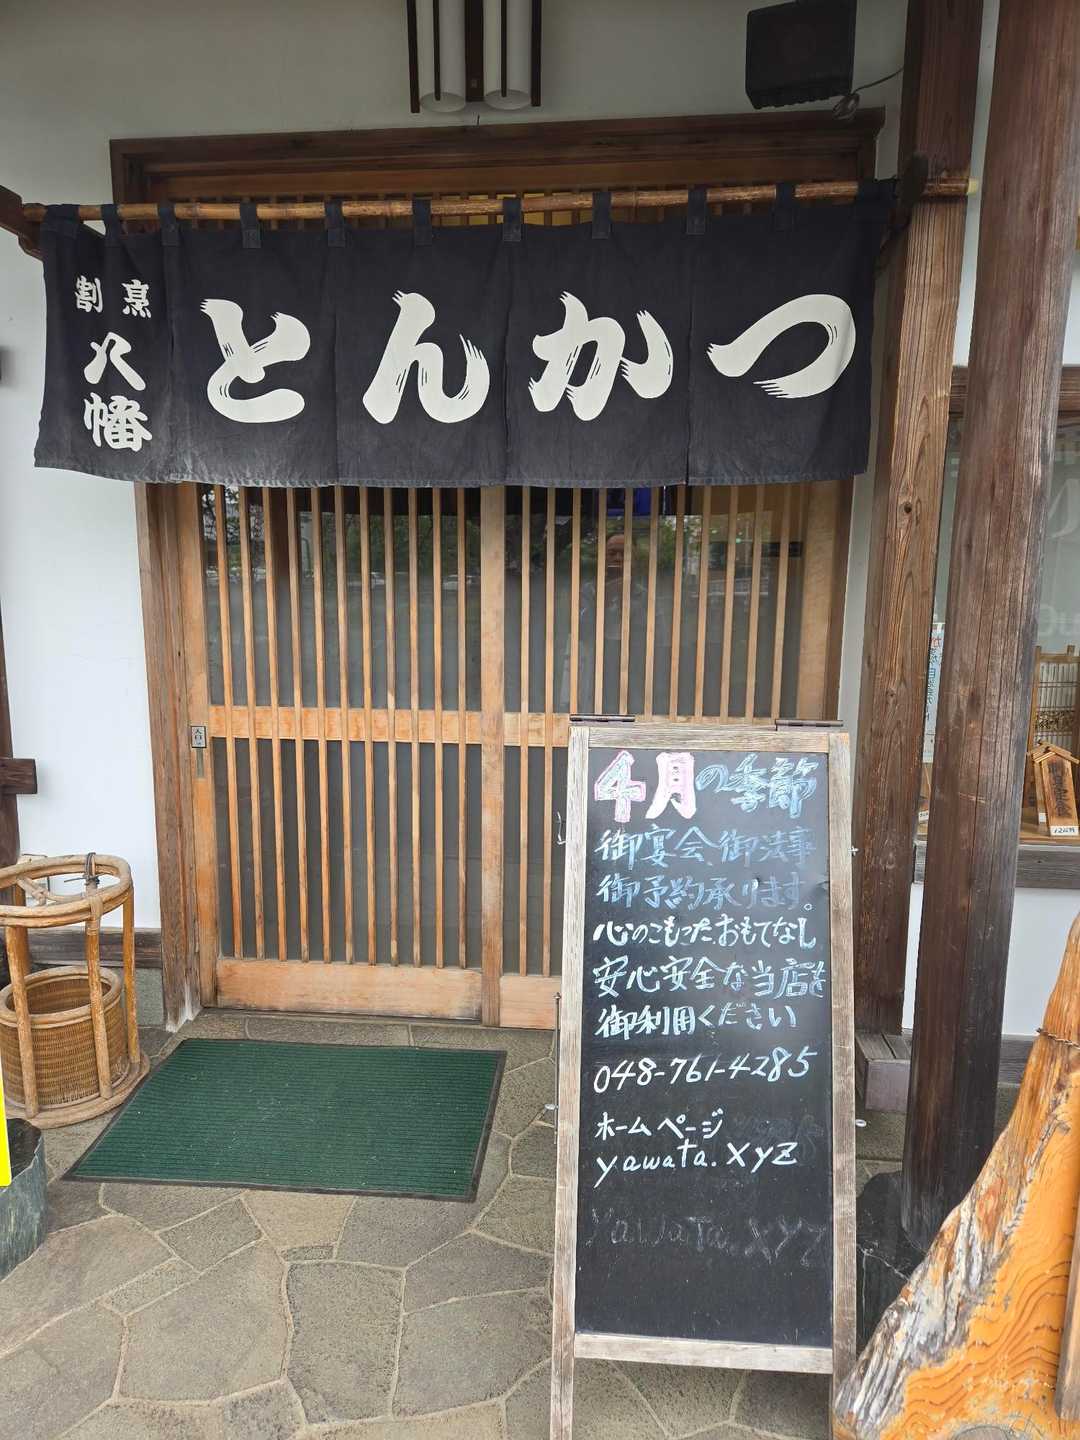 割烹
八幡
とんかつ
4月の季節
御宴会、御法事
御予約承ります。
心のこもったおもてなし
安心安全な当店を
御利用ください
048-761-4285
ホームページ
yawata.xyz
yawata.xyz
入口